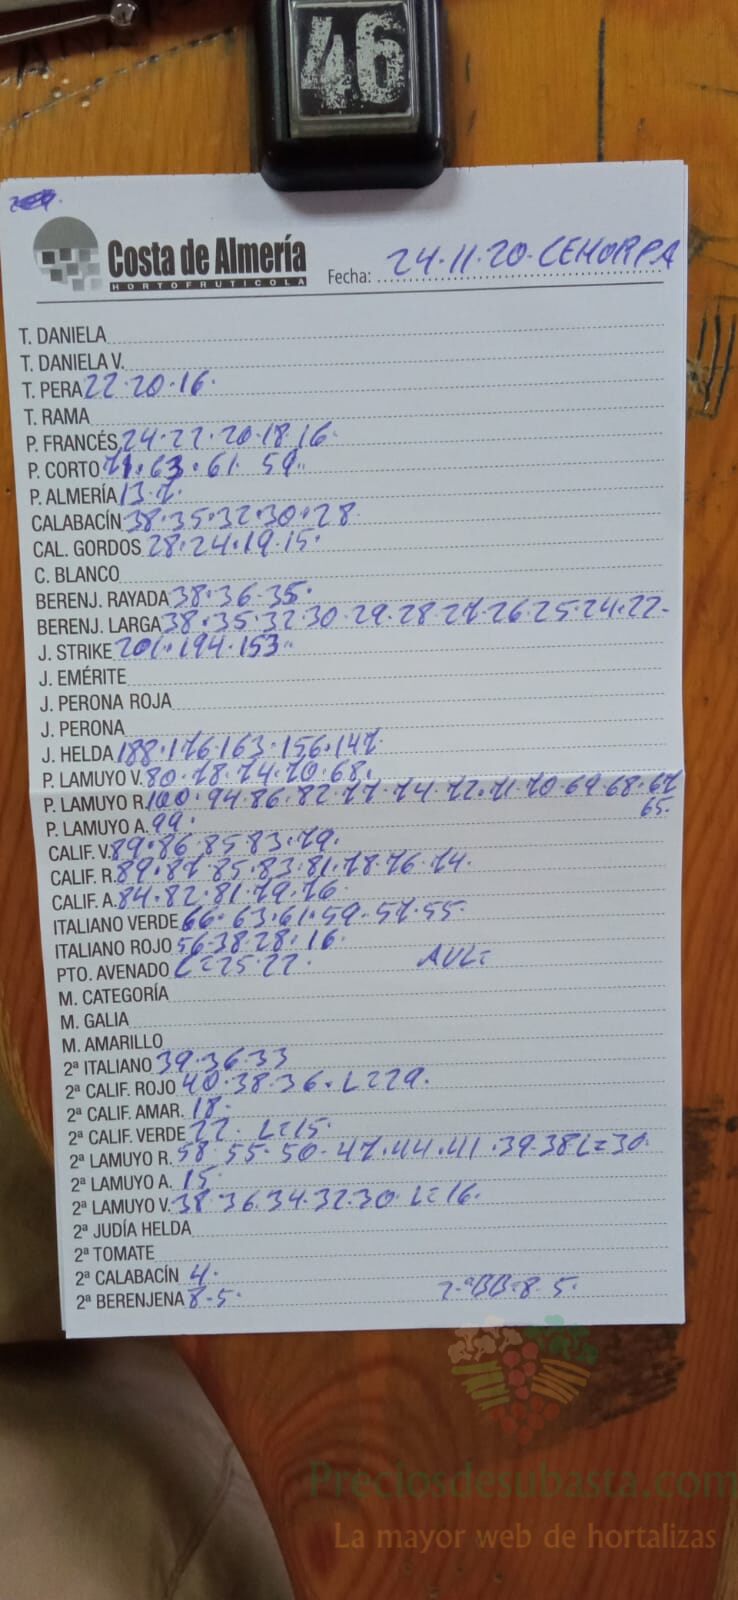 46
Costa de Almería
HORTOFRUTICOLA
Fecha: 24.11.20. CEHORPA
T. DANIELA
T. DANIELA V.
T. PERA 22.20.16.
T. RAMA
P. FRANCÉS 24.22.20.18.16.
P. CORTO 71.63.61 59.
P. ALMERÍA 13.7.
CALABACÍN 38.35.32.30.28
CAL. GORDOS 28.24.19.15.
C. BLANCO
BERENJ. RAYADA 38.36.35.
BERENJ. LARGA 38.35.32.30.29.28.27.26.25.24.22.
J. STRIKE 201.194.153.
J. EMÉRITE
J. PERONA ROJA
J. PERONA
J. HELDA 188.176.163.156.147.
P. LAMUYO V. 80.78.74.70.68.
P. LAMUYO R. 100.94.86.82.77.74.72.71.70.69.68.67
65.
P. LAMUYO A. 99.
CALIF. V. 89.86.85.83.79.
CALIF. R. 89.87.85.83.81.78.76.74.
CALIF. A. 84.82.81.79.76.
ITALIANO VERDE 66.63.61.59.57.55.
ITALIANO ROJO 56.38.28.16.
PTO. AVENADO L=25.22. AVL=
M. CATEGORÍA
M. GALIA
M. AMARILLO
2ª ITALIANO 39.36.33
2ª CALIF. ROJO 40.38.36. L=29.
2ª CALIF. AMAR. 18.
2ª CALIF. VERDE 22. L=15.
2ª LAMUYO R. 58.55.50.47.44.41.39.38 L=30.
2ª LAMUYO A. 15.
2ª LAMUYO V. 38.36.34.32.30 L=16.
2ª JUDÍA HELDA
2ª TOMATE
2ª CALABACÍN 4.
2ª BERENJENA 8.5. 2.ªBB=8.5.
Preciosdesubasta.com
La mayor web de hortalizas